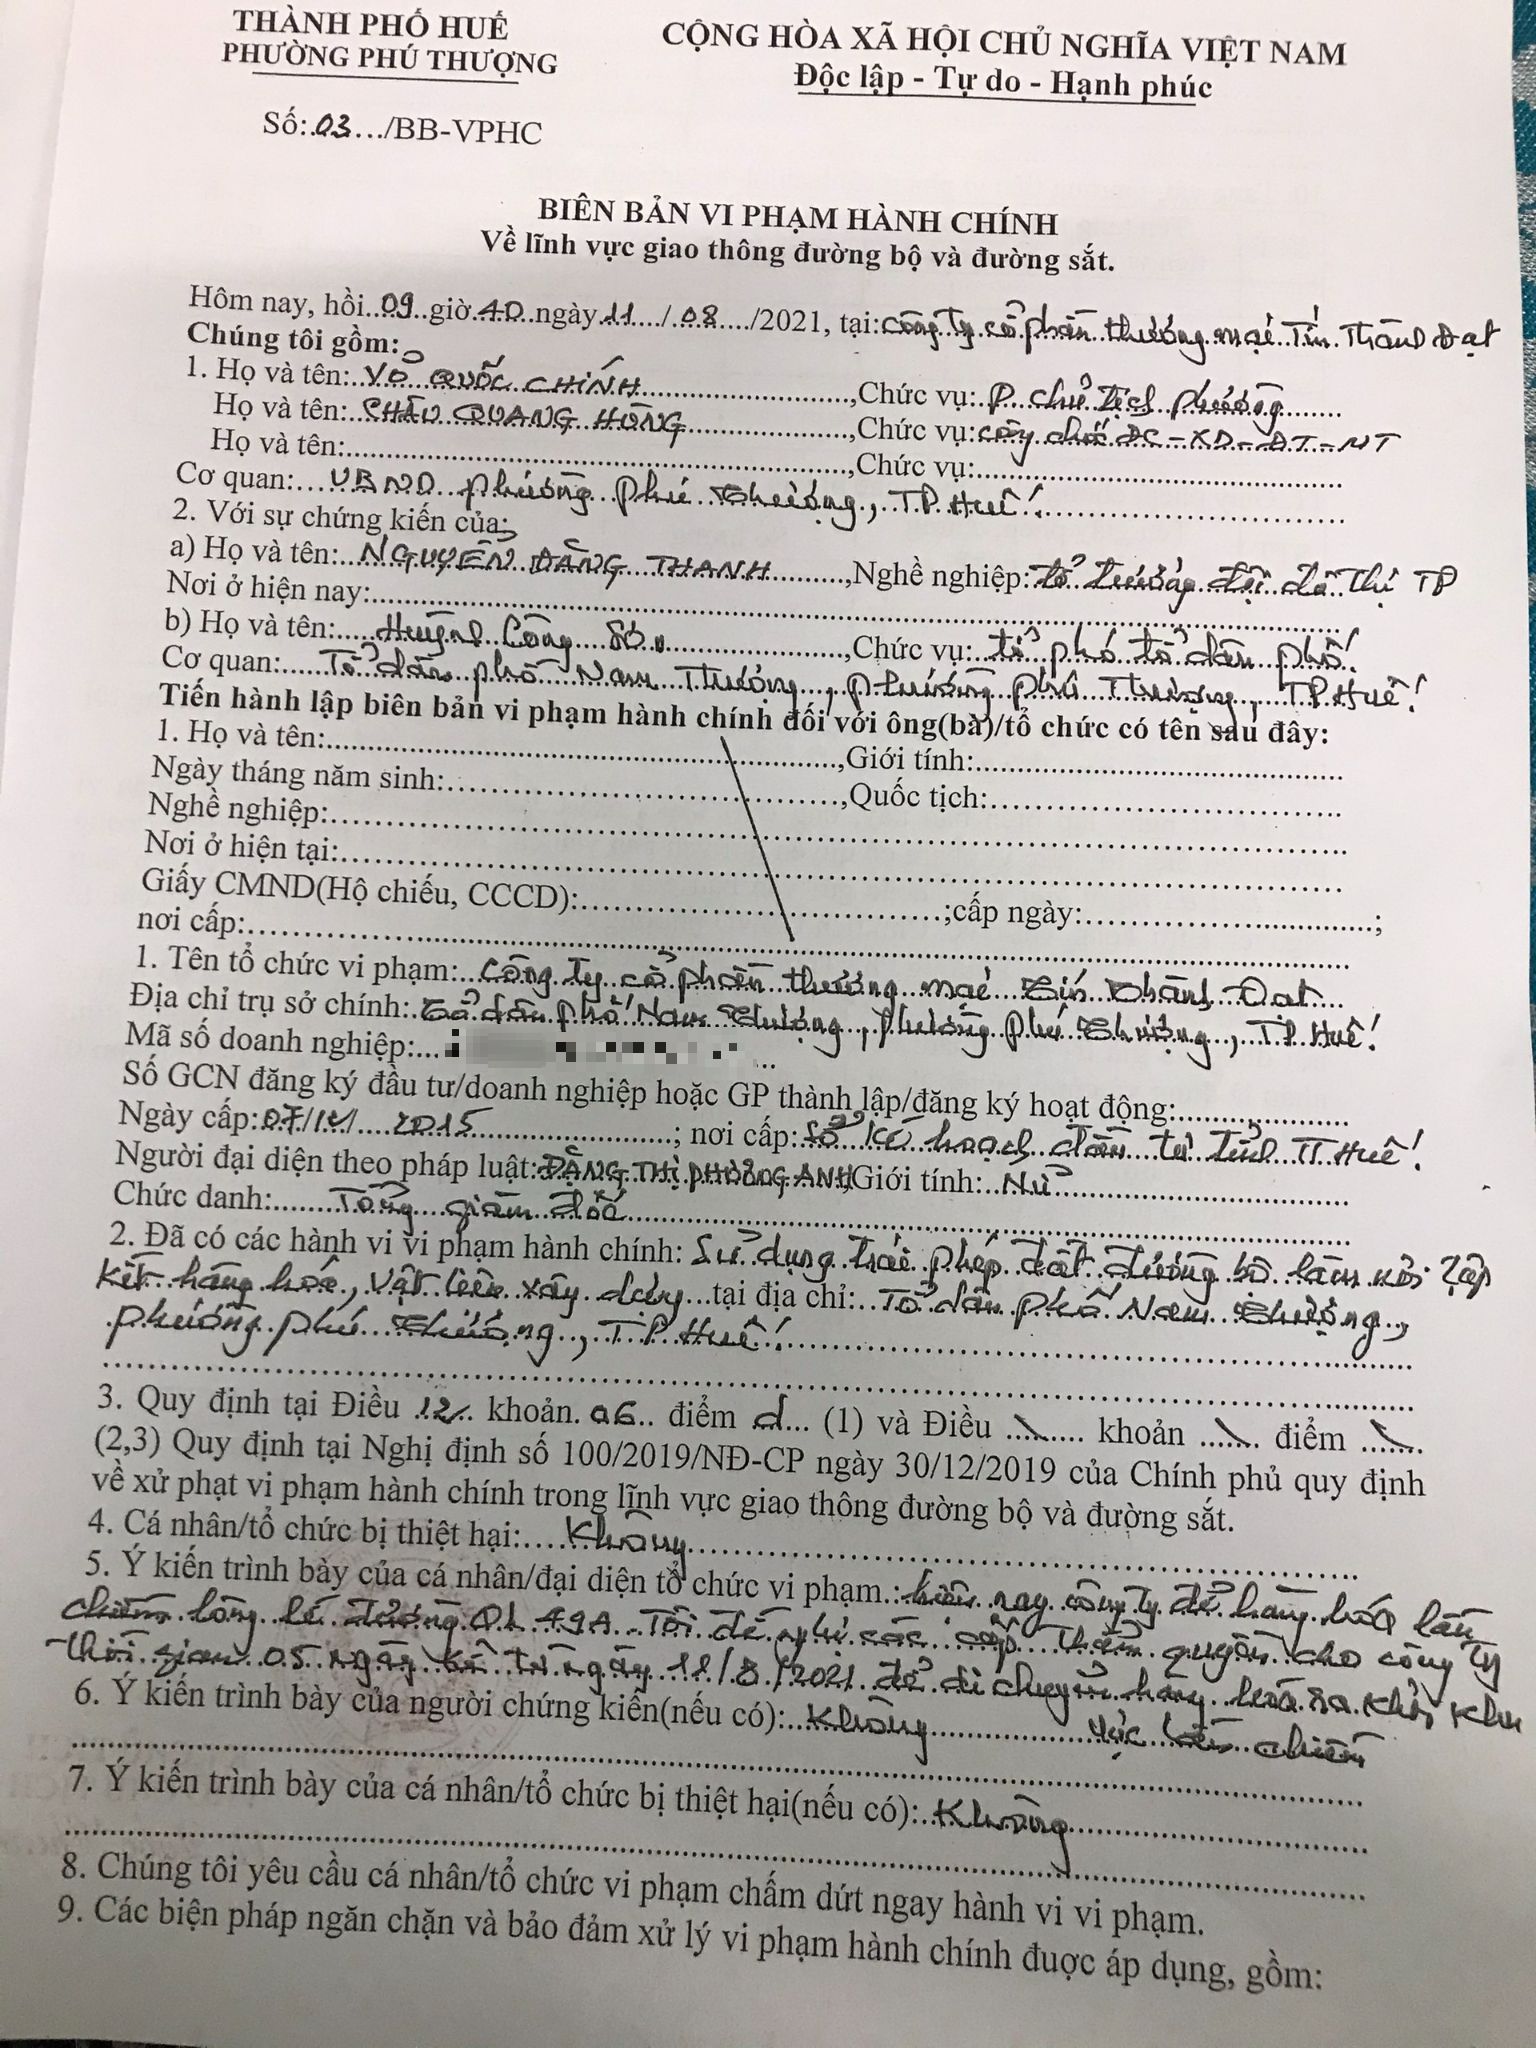 THÀNH PHỐ HUẾ
PHƯỜNG PHÚ THƯỢNG
CỘNG HÒA XÃ HỘI CHỦ NGHĨA VIỆT NAM
Độc lập - Tự do - Hạnh phúc
Số:.03.../BB-VPHC
BIÊN BẢN VI PHẠM HÀNH CHÍNH
Về lĩnh vực giao thông đường bộ và đường sắt.
Hôm nay, hồi..09..giờ.40.ngày.11.../.08..../2021, tại:công ty cổ phần thương mại Tín Thành Đạt
Chúng tôi gồm:
1. Họ và tên: VÕ QUỐC CHÍNH, Chức vụ: P. chủ tịch phường
Họ và tên: CHÂU QUANG HỒNG, Chức vụ: công chức ĐC-XD-ĐT-MT
Họ và tên:............, Chức vụ:............
Cơ quan: UBND phường Phú Thượng, TP Huế.
2. Với sự chứng kiến của:
a) Họ và tên: NGUYỄN ĐĂNG THANH, Nghề nghiệp: tổ trưởng đội đô thị TP
Nơi ở hiện nay:............
b) Họ và tên: Huỳnh Công Sơn, Chức vụ: tổ phó tổ dân phố
Cơ quan: Tổ dân phố Nam Thượng, phường Phú Thượng, TP Huế.
Tiến hành lập biên bản vi phạm hành chính đối với ông(bà)/tổ chức có tên sau đây:
1. Họ và tên:............,Giới tính:............
Ngày tháng năm sinh:............,Quốc tịch:............
Nghề nghiệp:............
Nơi ở hiện tại:............
Giấy CMND(Hộ chiếu, CCCD):............;cấp ngày:............;
nơi cấp:............
1. Tên tổ chức vi phạm: Công ty cổ phần thương mại Tín Thành Đạt
Địa chỉ trụ sở chính: Tổ dân phố Nam Thượng, phường Phú Thượng, TP Huế.
Mã số doanh nghiệp:...
Số GCN đăng ký đầu tư/doanh nghiệp hoặc GP thành lập/đăng ký hoạt động:............
Ngày cấp: 07/12/2015; nơi cấp: Sở Kế hoạch đầu tư tỉnh TT Huế.
Người đại diện theo pháp luật: ĐẶNG THỊ PHƯƠNG ANH, Giới tính: Nữ
Chức danh: Tổng giám đốc
2. Đã có các hành vi vi phạm hành chính: Sử dụng trái phép đất đường bộ làm nơi tập
kết hàng hoá, vật liệu xây dựng tại địa chỉ: Tổ dân phố Nam Thượng,
phường Phú Thượng, TP Huế.
3. Quy định tại Điều 12 khoản 06 điểm d (1) và Điều \ khoản \ điểm \
(2,3) Quy định tại Nghị định số 100/2019/NĐ-CP ngày 30/12/2019 của Chính phủ quy định
về xử phạt vi phạm hành chính trong lĩnh vực giao thông đường bộ và đường sắt.
4. Cá nhân/tổ chức bị thiệt hại: Không
5. Ý kiến trình bày của cá nhân/đại diện tổ chức vi phạm : hiện nay công ty để hàng hoá lấn
chiếm lòng lề đường QL 49A. Tôi đề nghị các cấp thẩm quyền cho công ty
thời gian 05 ngày kể từ ngày 11/8/2021 để di chuyển hàng hoá ra khỏi khu
vực lấn chiếm
6. Ý kiến trình bày của người chứng kiến(nếu có): Không
7. Ý kiến trình bày của cá nhân/tổ chức bị thiệt hại(nếu có): Không
8. Chúng tôi yêu cầu cá nhân/tổ chức vi phạm chấm dứt ngay hành vi vi phạm.
9. Các biện pháp ngăn chặn và bảo đảm xử lý vi phạm hành chính đuợc áp dụng, gồm: